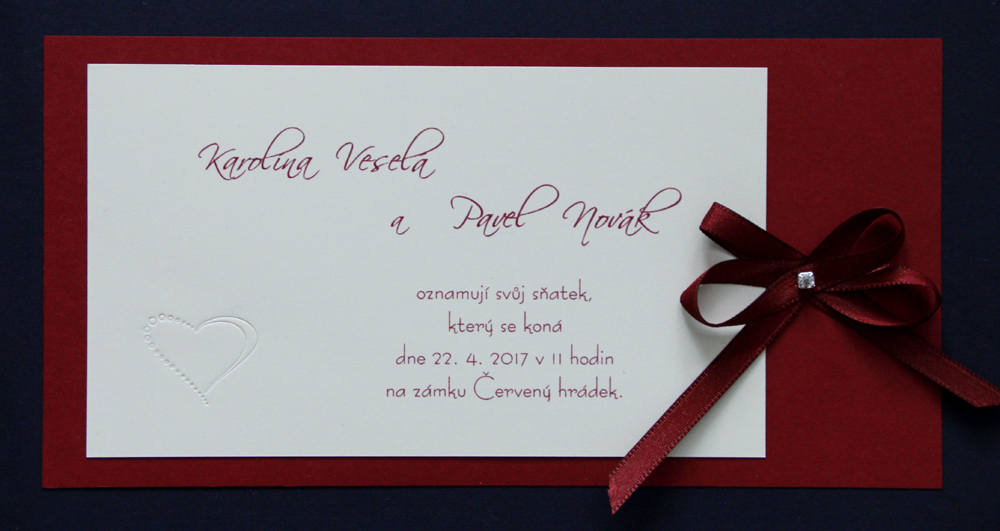 Karolína Veselá
a Pavel Novák
oznamují svůj sňatek,
který se koná
dne 22. 4. 2017 v 11 hodin
na zámku Červený hrádek.